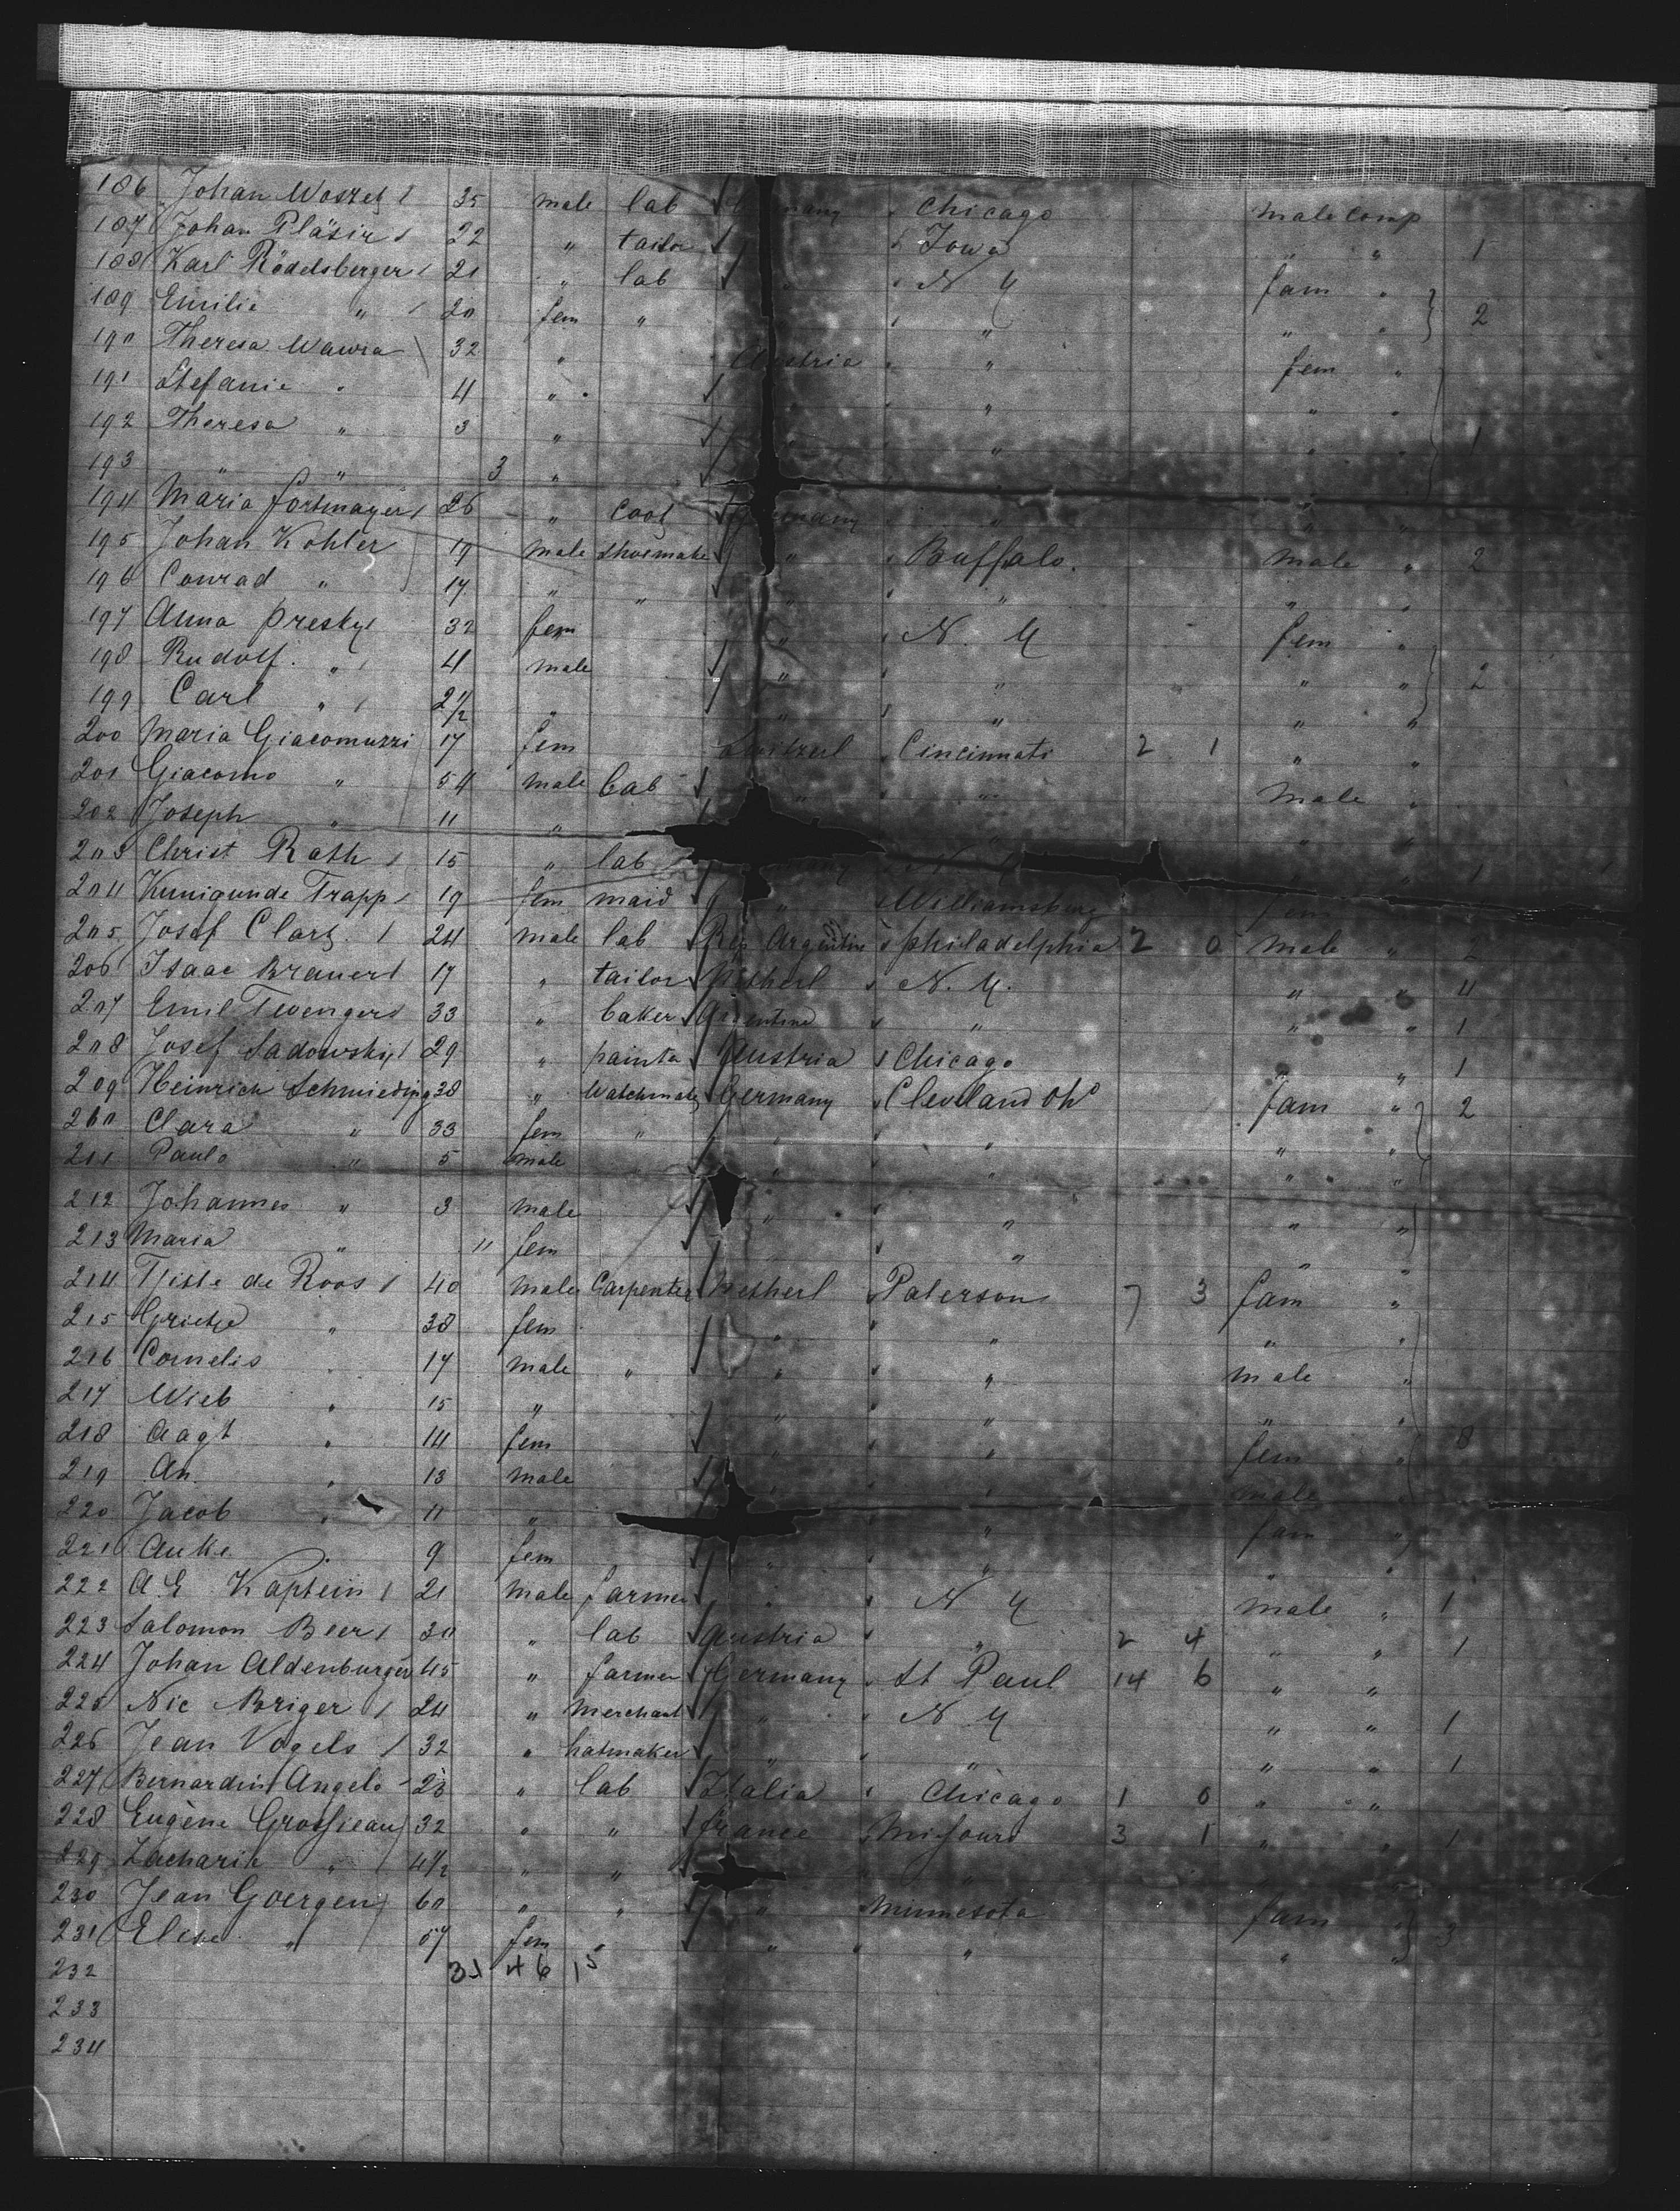 186 Johan Woszek / 35 male lab Chicago male Comp
187 Johan Pläsir / 22 " tailor Iowa " " 1
188 Karl Rödelsberger / 21 " lab " N Y fam "
189 Emilie " / 20 fem " " " " 2
190 Theresa Wawra 32 " Austria " fem "
191 Stefanie " 4 " " " " "
192 Theresa " 3 " " " " " 1
193 " " 3 " "
194 Maria Fortmayer / 26 " Cook Germany " " "
195 Johan Kohler 19 male shoemake " Buffalo. male " 2
196 Conrad " 17 " " " " " "
197 Anna Presky / 32 fem " N. Y fem "
198 Rudolf " / 4 male " " " " 2
199 Carl " / 2 1/2 " " " " "
200 Maria Giacomuzzi 17 fem Cincinnati 2 1 " "
201 Giacomo " 54 male lab " " male "
202 Joseph " 11 " " " "
203 Christ Rath / 15 " lab N Y " " 1
204 Kunigunde Trapp / 19 fem maid " Williamsburg fem
205 Josef Clark / 24 male lab Rep Argentine philadelphia 2 0 male "
206 Isaac Brauer / 17 " tailor Netherl N. Y. " " 4
207 Emil Twenger / 33 " baker Argentine " " " 1
208 Josef Sadowsky / 29 " painte Austria Chicago " " 1
209 Heinrich Schmieding 38 " Watchmak Germany Cleveland Oho fam " 2
260 Clara " 33 fem " " " " "
211 Paulo " 5 male " " " "
212 Johannes " 3 male " " " "
213 Maria " 11 fem " " " "
214 Tjitte de Roos / 40 male Carpenter Netherl Paterson 7 3 fam "
215 Grietje " 38 fem " " " "
216 Cornelis " 17 male " " " male "
217 Wieb " 15 " " " " "
218 Aagt " 14 fem " " fem " 8
219 An " 13 male " " male "
220 Jacob " 11 " " fam "
221 Auke 9 fem " " " "
222 A E Kaptein / 21 male farmer " N Y male " 1
223 Salomon Beer / 30 " lab Austria " 2 4 " " 1
224 Johan Aldenburger 45 " farmer Germany St Paul 14 6 " "
225 Nic Briger / 24 " Merchant " N Y " " 1
226 Jean Vogels / 32 " hatmaker " " " " 1
227 Bernardini Angelo 28 " lab Italia Chicago 1 0 " "
228 Eugène Grosjean 32 " " france Missouri 3 1 " " 1
229 Zacharie " 4 1/2 " " "
230 Jean Goergen 60 " " " Minnesota fam "
231 Elise " 57 fem " " " " " 3
232 46 15
233
234